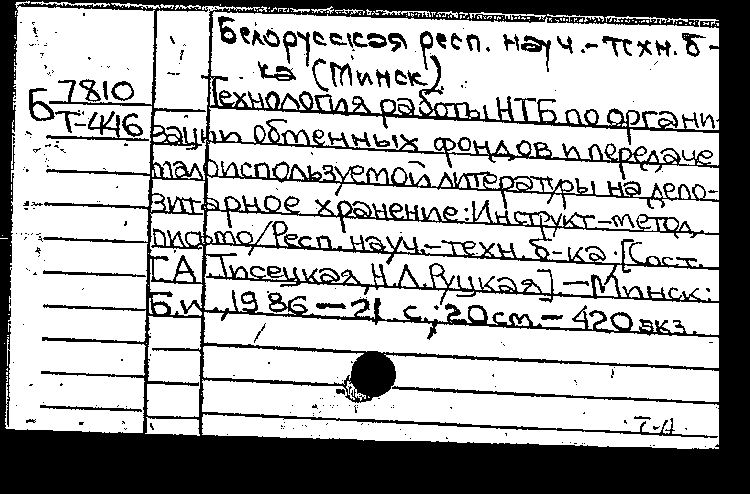 Белорусская респ. науч.-техн. б-
ка (Минск)
Б 7810
Т-446
Технология работы НТБ по органи-
зации обменных фондов и передаче
малоиспользуемой литературы на депо-
зитарное хранение: Инструкт.-метод.
письмо/Респ. науч.-техн. б-ка; [Сост.
Г.А. Лисецкая, Н.Л. Руцкая].—Минск:
Б.и., 1986.—21 с.; 20 см.— 420 экз.